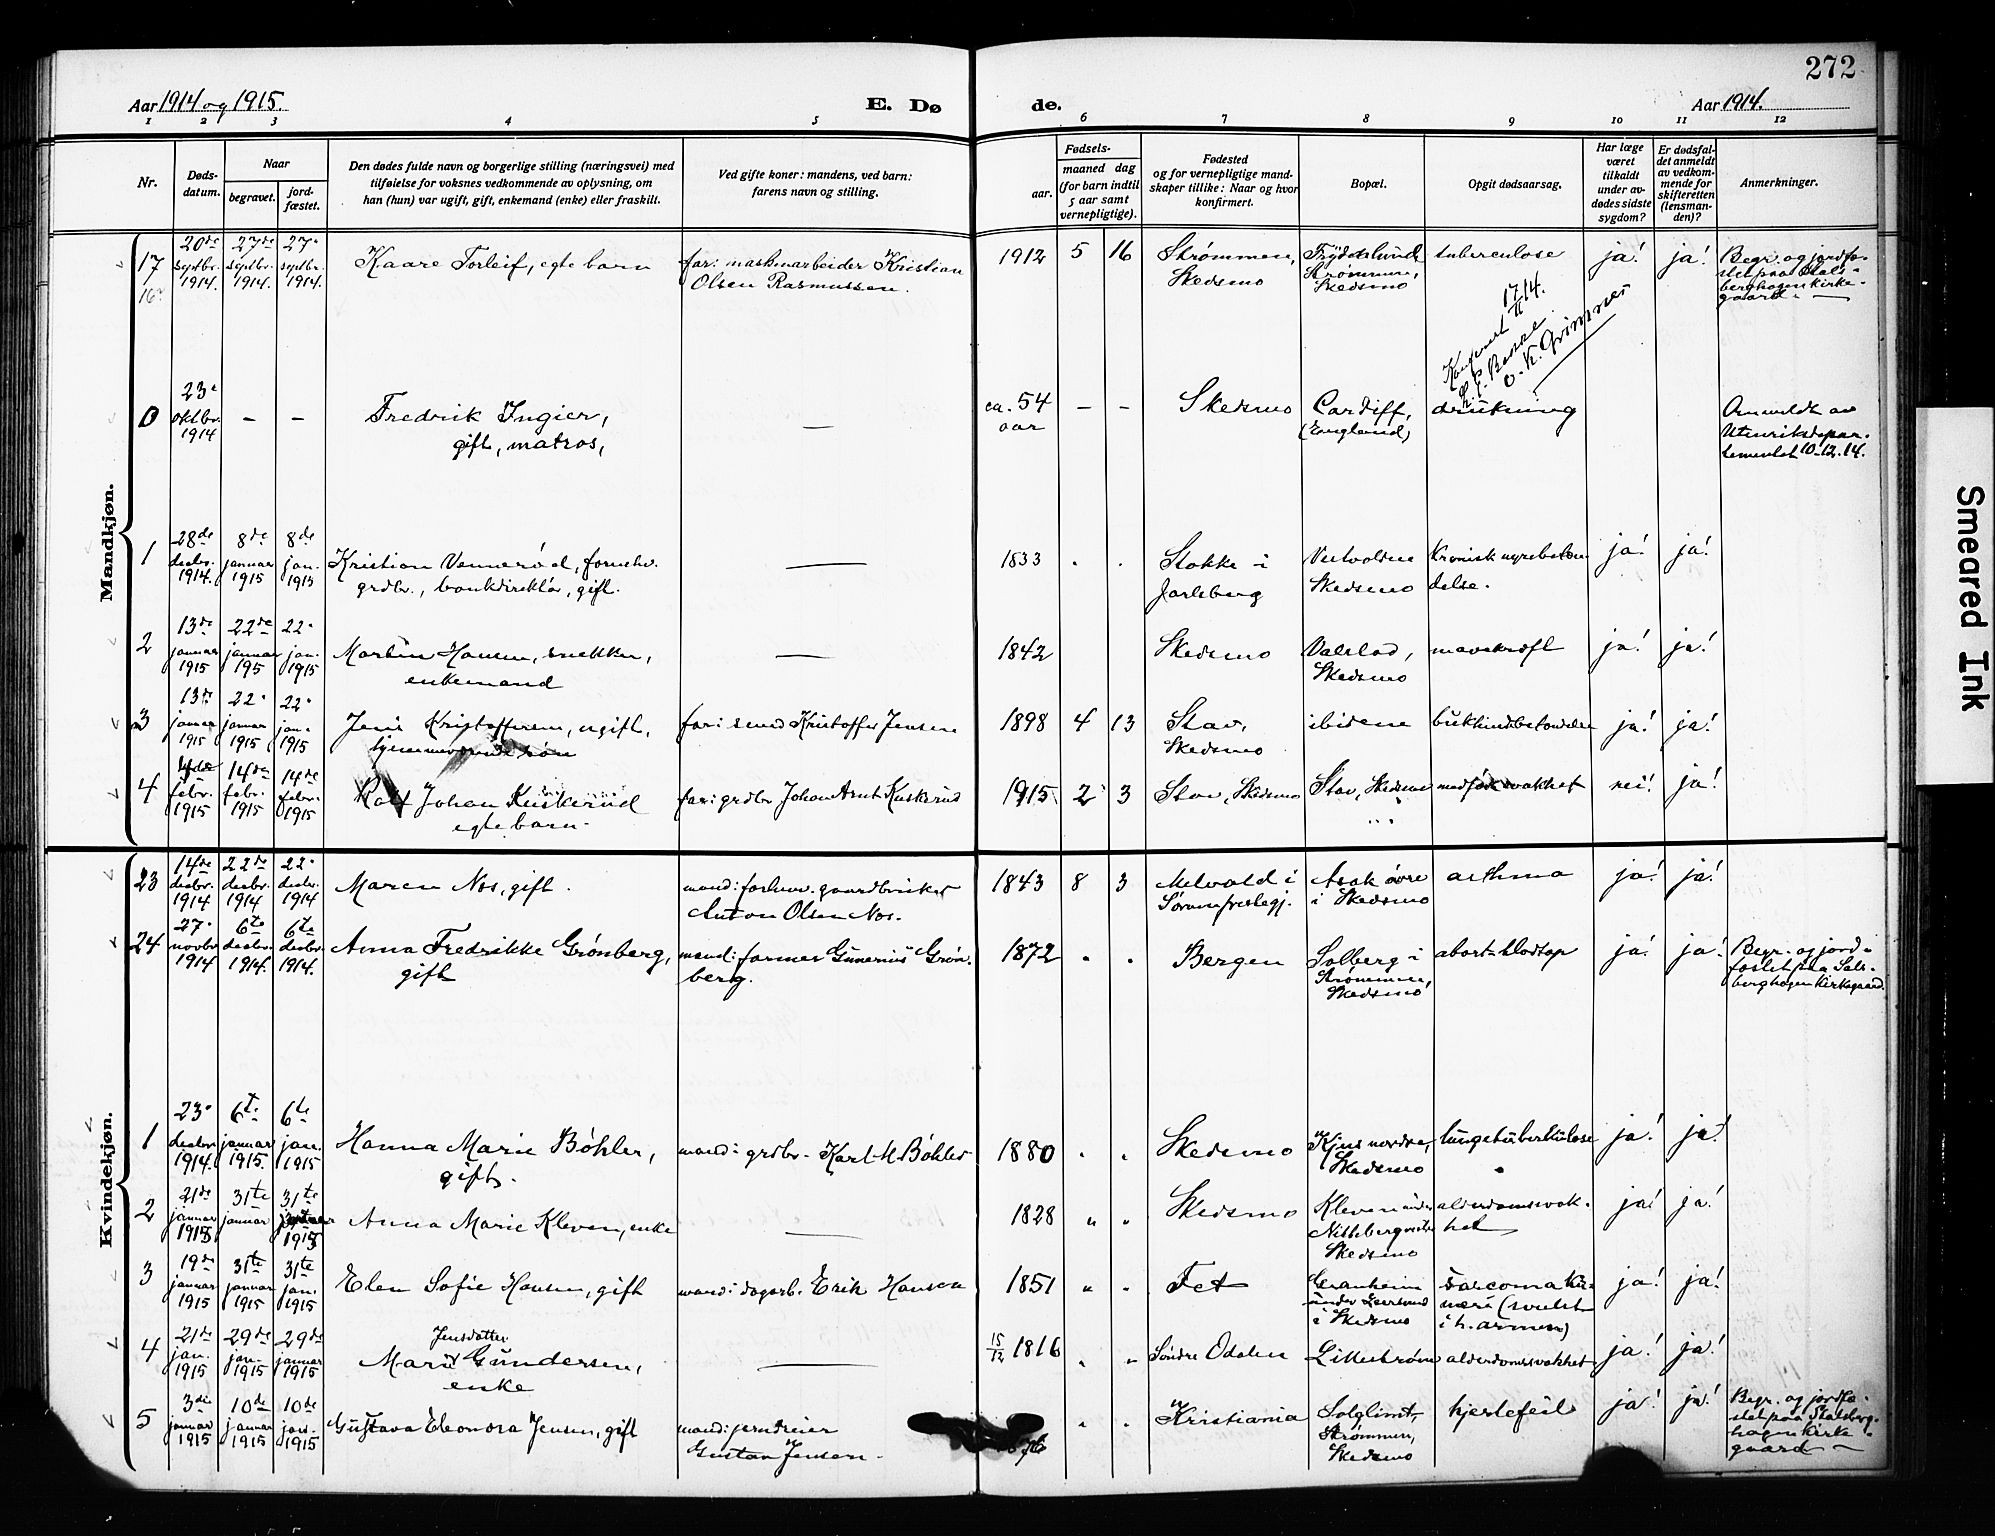 272
Aar 1914 og 1915.
E. Dø de.
Aar 1914.
1 2 3 4 5 6 7 8 9 10 11 12
Nr.
Døds-
datum.
Naar
begravet.
jord-
fæstet.
Den dødes fulde navn og borgerlige stilling (næringsvei) med
tilføielse for voksnes vedkommende av oplysning, om
han (hun) var ugift, gift, enkemand (enke) eller fraskilt.
Ved gifte koner: mandens, ved barn:
farens navn og stilling.
Fødsels-
aar.
maaned dag
(for barn indtil
5 aar samt
vernepligtige).
Fødested
og for vernepligtige mand-
skaper tillike: Naar og hvor
konfirmert.
Bopæl.
Opgit dødsaarsag.
Har læge
været
tilkaldt
under av-
dødes sidste
sygdom?
Er dødsfal-
det anmeldt
av vedkom-
mende for
skifteretten
(lensman-
den)?
Anmerkninger.
Mandkjøn.
17
16
20de
septbr.
1914.
27de
septbr.
1914.
27
septbr.
1914.
Kaare Torleif, egte barn
far: maskinarbeider Kristian
Olsen Rasmussen.
1912 5 16
Strømmen,
Skedsmo
Frydenlund
Strømmen,
Skedsmo
tuberculose
ja! ja!
Begr. og jordfæ-
stet paa Stals-
berghagen kirke-
gaard.
17/11 14.
O. K. Grimnes
0
23
oktbr.
1914
- -
Fredrik Ingier,
gift, matros,
—
ca. 54
aar
- -
Skedsmo
Cardiff,
(England)
drukning
Anmeldt av
Utenriksdepar-
tementet 10-12.14.
1
28de
decbr.
1914.
8de
januar
1915
8de
jan.
1915
Kristian Vennerød, forhv.
grdbr., bankdirektør, gift.
—
1833
Stokke i
Jarlsberg
Vestvolden
Skedsmo
Kronisk nyrebeten-
delse.
ja! ja!
2
13de
januar
1915
22de
januar
195
22
jan.
1915
Martin Hansen, snekker,
enkemand
—
1842
Skedsmo
Valstad,
Skedsmo
mavekræft
ja! ja!
3
13de
januar
1915
22
januar
1915
22
jan.
1915
Jens Kristoffersen, ugift,
far: smed Kristoffer Jensen
1898 4 13
Stav,
Skedsmo
ibidem
bukhindebetændelse
ja! ja!
4
4de
febr.
1915
14de
febr.
1915
14de
febr.
1915
Rolf Johan Kuskerud
egte barn.
far: grdbr Johan Arnt Kuskerud
1915 2 3
Stav, Skedsmo
Stav, Skedsmo
medfødt svakhet
nei! ja!
Kvindekjøn.
23
14de
decbr.
1914
22de
decbr.
1914
22
decbr.
1914
Maren Nos, gift.
mand: forhenv. gaardbruker
Anton Olsen Nos.
1843 8 3
Melvold i
Sørum prestegj.
Asak øvre
i Skedsmo
asthma
ja! ja!
24
27
novbr.
1914
6te
decbr.
1914.
6te
decbr.
1914.
Anna Fredrikke Grønberg,
gift
mand: former Gunerius Grøn-
berg.
1872
Bergen
Solberg i
Strømmen,
Skedsmo
abort-blodtap
ja! ja!
Begr. og jord-
fæstet paa Stals-
berghagen kirkegaard.
1
23
decbr.
1914.
6te
januar
1915.
6te
jan.
1915
Hanna Marie Bøhler,
gift.
mand: grdbr. Karl M Bøhler
1880
Skedsmo
Kjus nordre,
Skedsmo
lungetuberkulose
ja! ja!
2
21de
januar
1915
31te
januar
31te
1915
Anna Marie Kleven, enke
—
1828
Skedsmo
Kleven under
Nitteberg vestre
Skedsmo
alderdomssvak-
het
ja! ja!
3
19de
januar
1915
31te
januar
1915
31te
jan.
1915
Elen Sofie Hansen, gift
mand: dagarb. Erik Hansen
1851
Fet
Granheim
under Leersund
i Skedsmo
Sarcoma hu-
meri (svulst
i h. armen)
ja! ja!
4
21de
jan.
1915
29de
jan.
1915
29de
januar
1915
Jensdatter
Mari Gundersen,
enke
—
15/12 1816
Søndre Odalen
Lillestrøm
alderdomssvakhet
ja! ja!
5
3die
januar
1915
10de
januar
1915
10de
jan.
1915
Gustava Eleonora Jensen, gift
mand: jerndreier
Gustav Jensen.
1876
Kristiania
Solglimt,
Strømmen,
Skedsmo
hjertefeil
ja! ja!
Begr. og jordfæ-
stet paa Stalsberg-
hagen kirke-
gaard
Smeared Ink